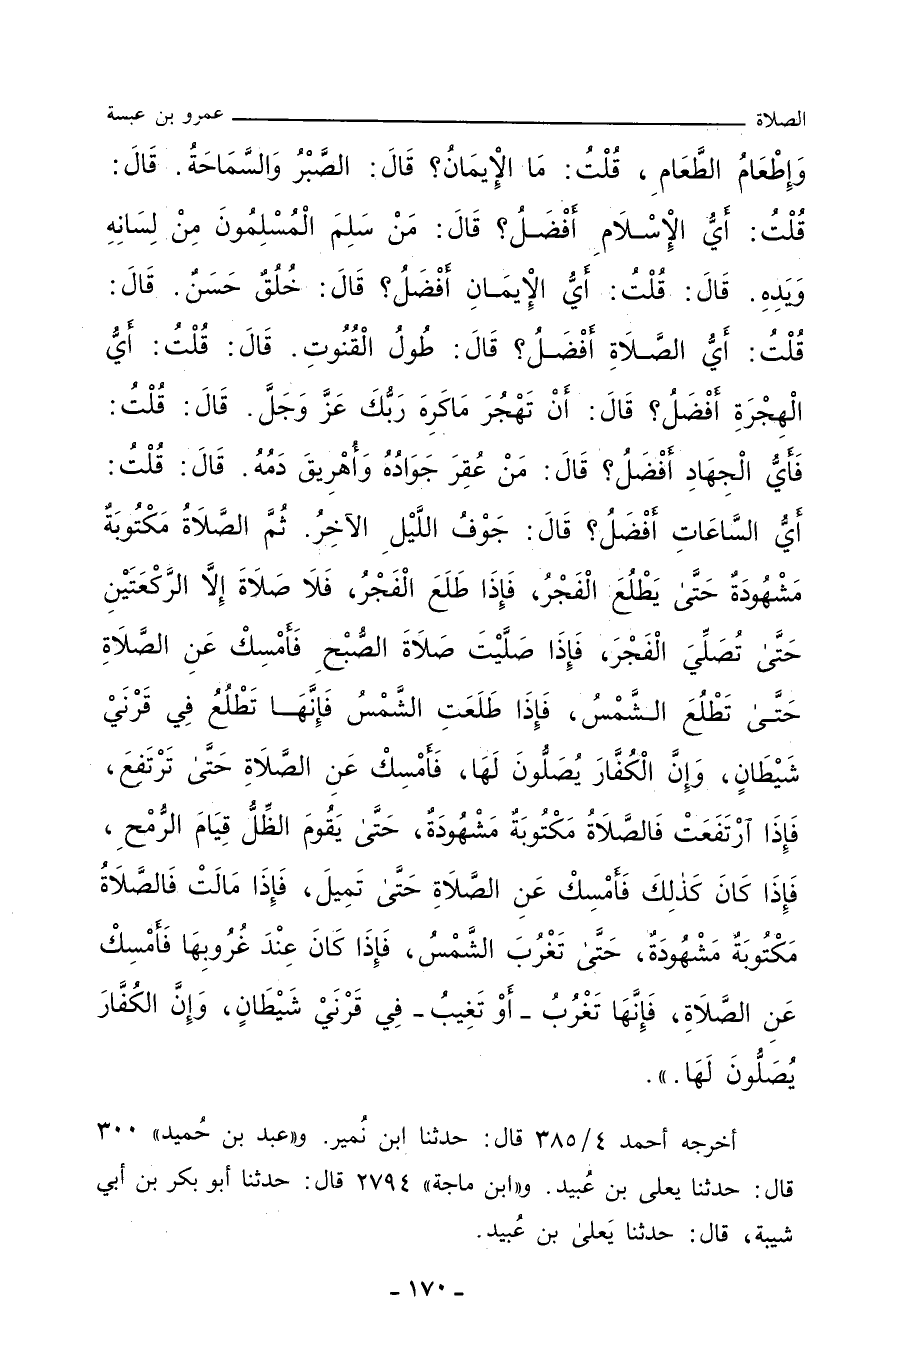 الصلاة ــــــــــ عمرو بن عبسة
وَإِطْعَامُ الطَّعَامِ ، قُلْتُ: مَا الْإِيمَانُ؟ قَالَ: الصَّبْرُ وَالسَّمَاحَةُ. قَالَ:
قُلْتُ: أَيُّ الإِسْلَامِ أَفْضَلُ؟ قَالَ: مَنْ سَلِمَ الْمُسْلِمُونَ مِنْ لِسَانِهِ
وَيَدِهِ. قَالَ: قُلْتُ: أَيُّ الإِيمَانِ أَفْضَلُ؟ قَالَ: خُلُقٌ حَسَنٌ. قَالَ:
قُلْتُ: أَيُّ الصَّلَاةِ أَفْضَلُ؟ قَالَ: طُولُ الْقُنُوتِ. قَالَ: قُلْتُ: أَيُّ
الْهِجْرَةِ أَفْضَلُ؟ قَالَ: أَنْ تَهْجُرَ مَاكَرِهَ رَبُّكَ عَزَّ وَجَلَّ. قَالَ: قُلْتُ:
فَأَيُّ الْجِهَادِ أَفْضَلُ؟ قَالَ: مَنْ عُقِرَ جَوَادُهُ وَأُهْرِيقَ دَمُهُ. قَالَ: قُلْتُ:
أَيُّ السَّاعَاتِ أَفْضَلُ؟ قَالَ: جَوْفُ اللَّيْلِ الآخِرُ. ثُمَّ الصَّلَاةُ مَكْتُوبَةٌ
مَشْهُودَةٌ حَتَّىٰ يَطْلُعَ الْفَجْرُ، فَإِذَا طَلَعَ الْفَجْرُ، فَلَا صَلَاةَ إِلَّا الرَّكْعَتَيْنِ
حَتَّىٰ تُصَلِّيَ الْفَجْرَ، فَإِذَا صَلَّيْتَ صَلَاةَ الصُّبْحِ فَأَمْسِكْ عَنِ الصَّلَاةِ
حَتَّىٰ تَطْلُعَ الشَّمْسُ، فَإِذَا طَلَعَتِ الشَّمْسُ فَإِنَّهَا تَطْلُعُ فِي قَرْنَيْ
شَيْطَانٍ، وَإِنَّ الْكُفَّارَ يُصَلُّونَ لَهَا، فَأَمْسِكْ عَنِ الصَّلَاةِ حَتَّىٰ تَرْتَفِعَ،
فَإِذَا ٱرْتَفَعَتْ فَالصَّلَاةُ مَكْتُوبَةٌ مَشْهُودَةٌ، حَتَّىٰ يَقُومَ الظِّلُّ قِيَامَ الرُّمْحِ ،
فَإِذَا كَانَ كَذٰلِكَ فَأَمْسِكْ عَنِ الصَّلَاةِ حَتَّىٰ تَمِيلَ، فَإِذَا مَالَتْ فَالصَّلَاةُ
مَكْتُوبَةٌ مَشْهُودَةٌ، حَتَّىٰ تَغْرُبَ الشَّمْسُ، فَإِذَا كَانَ عِنْدَ غُرُوبِهَا فَأَمْسِكْ
عَنِ الصَّلَاةِ، فَإِنَّهَا تَغْرُبُ ـ أَوْ تَغِيبُ ـ فِي قَرْنَيْ شَيْطَانٍ، وَإِنَّ الكُفَّارَ
يُصَلُّونَ لَهَا.».
أخرجه أحمد ٣٨٥/٤ قال: حدثنا ابن نُمير. و«عبد بن حُميد» ٣٠٠
قال: حدثنا يعلى بن عُبيد. و«ابن ماجة» ٢٧٩٤ قال: حدثنا أبو بكر بن أبي
شيبة، قال: حدثنا يَعلىٰ بن عُبيد.
ـ ١٧٠ ـ